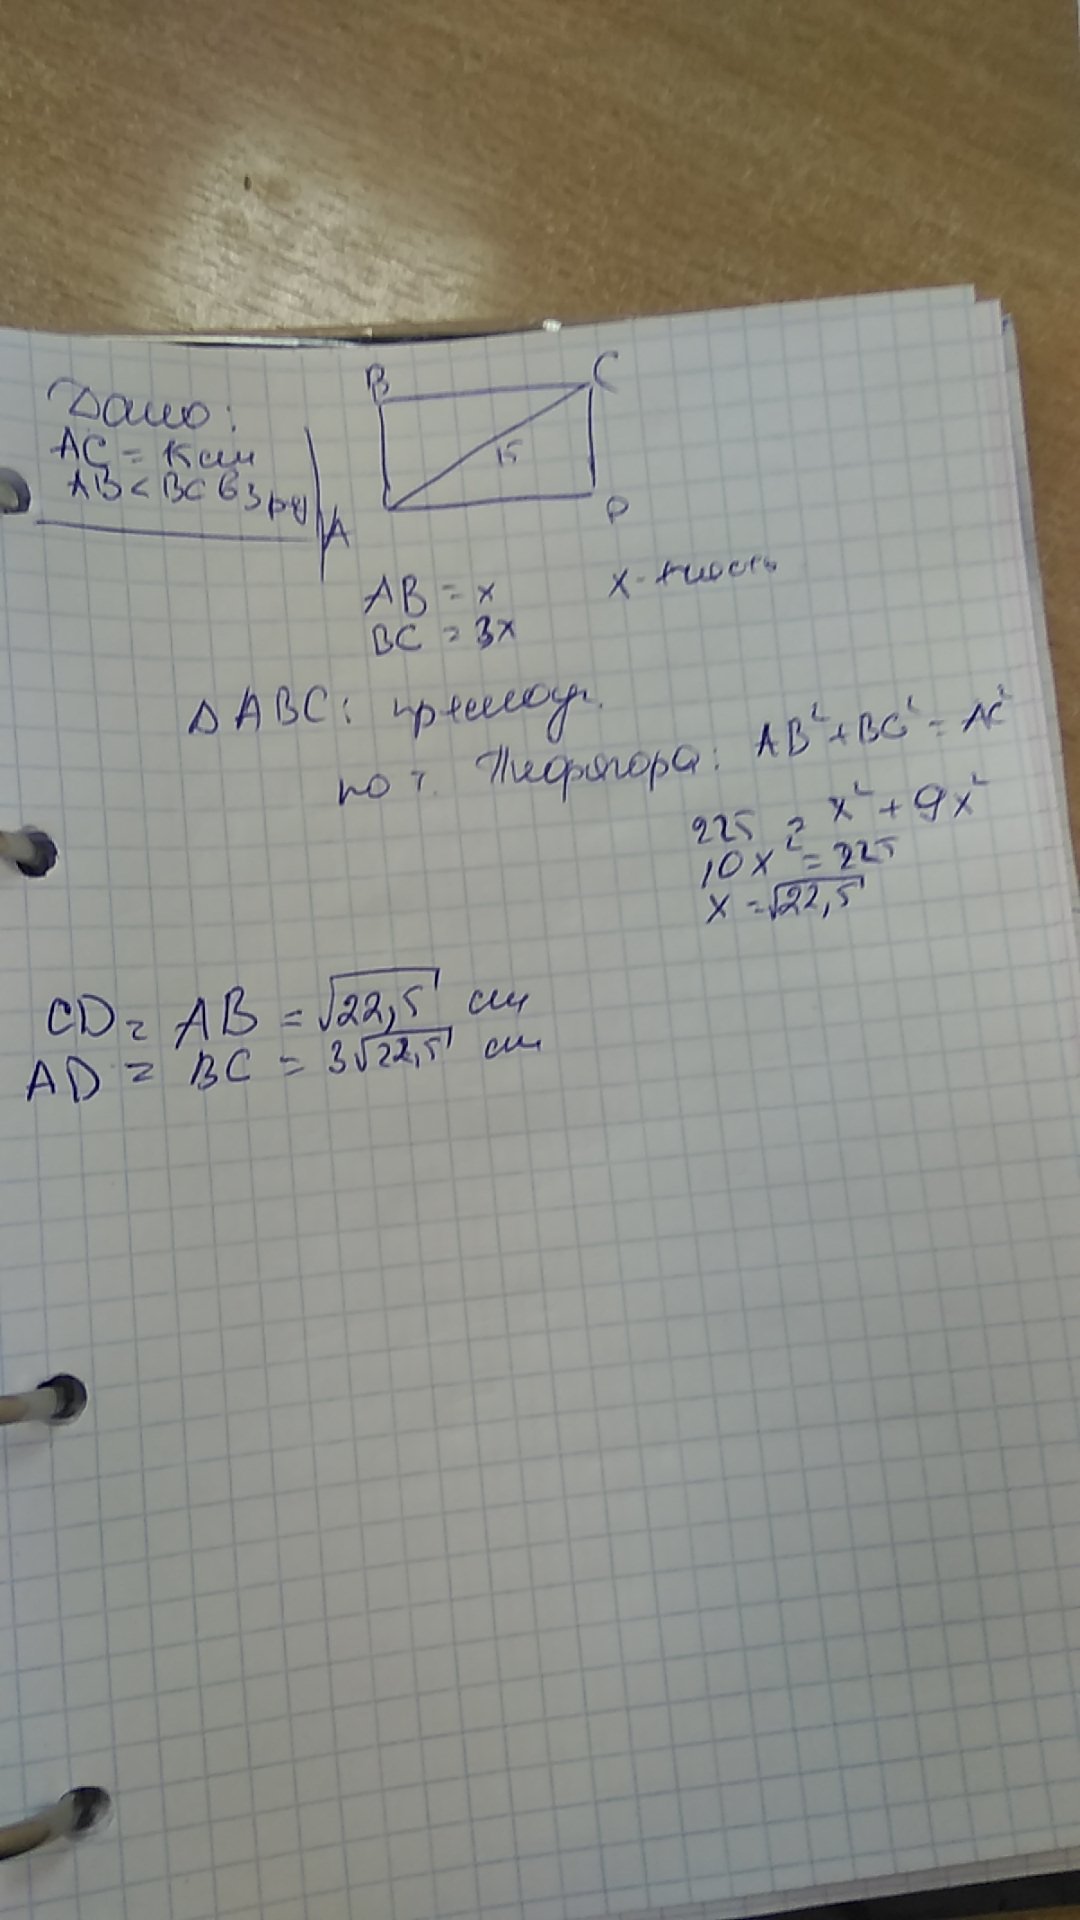 Дано:
AC = 15 см
AB < BC в 3 раза
B
C
15
A
D
AB = x
x - часть
BC = 3x
Δ ABC: прямоуг.
по т. Пифагора: AB² + BC² = AC²
225 = x² + 9x²
10x² = 225
x = √22,5
CD = AB = √22,5 см
AD = BC = 3√22,5 см